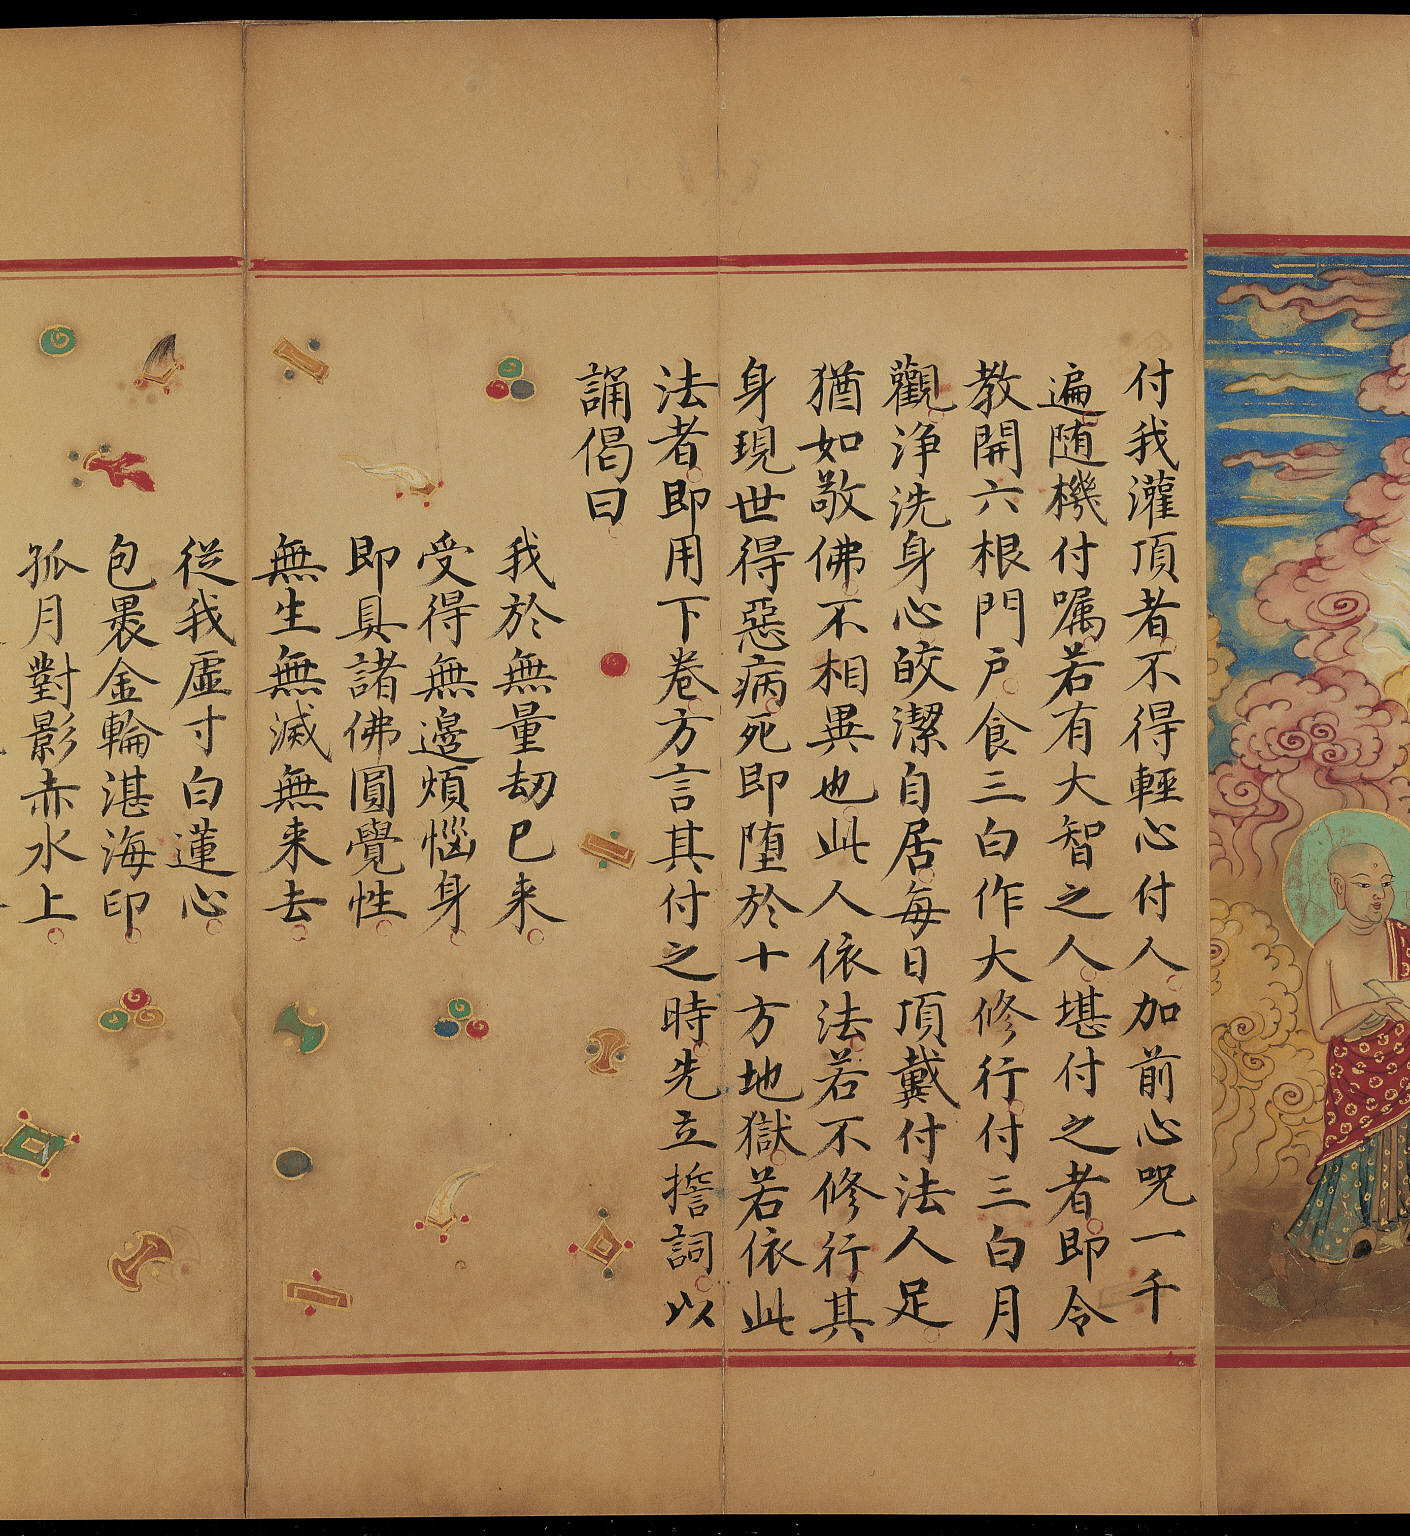 付我灌頂者不得輕心付人加前心呪一千
遍随機付嘱若有大智之人堪付之者即令
教開六根門户食三白作大修行付三白月
觀浄洗身心皎潔自居每日頂戴付法人足
猶如敬佛不相異也此人依法若不修行其
身現世得惡病死即堕於十方地獄若依此
法者即用下卷方言其付之時先立擔詞以
誦偈曰
我於無量劫已来
受得無邉煩惱身
即具諸佛圓覺性
無生無滅無来去
從我虛寸白蓮心
包褁金輪湛海印
孤月對影赤水上